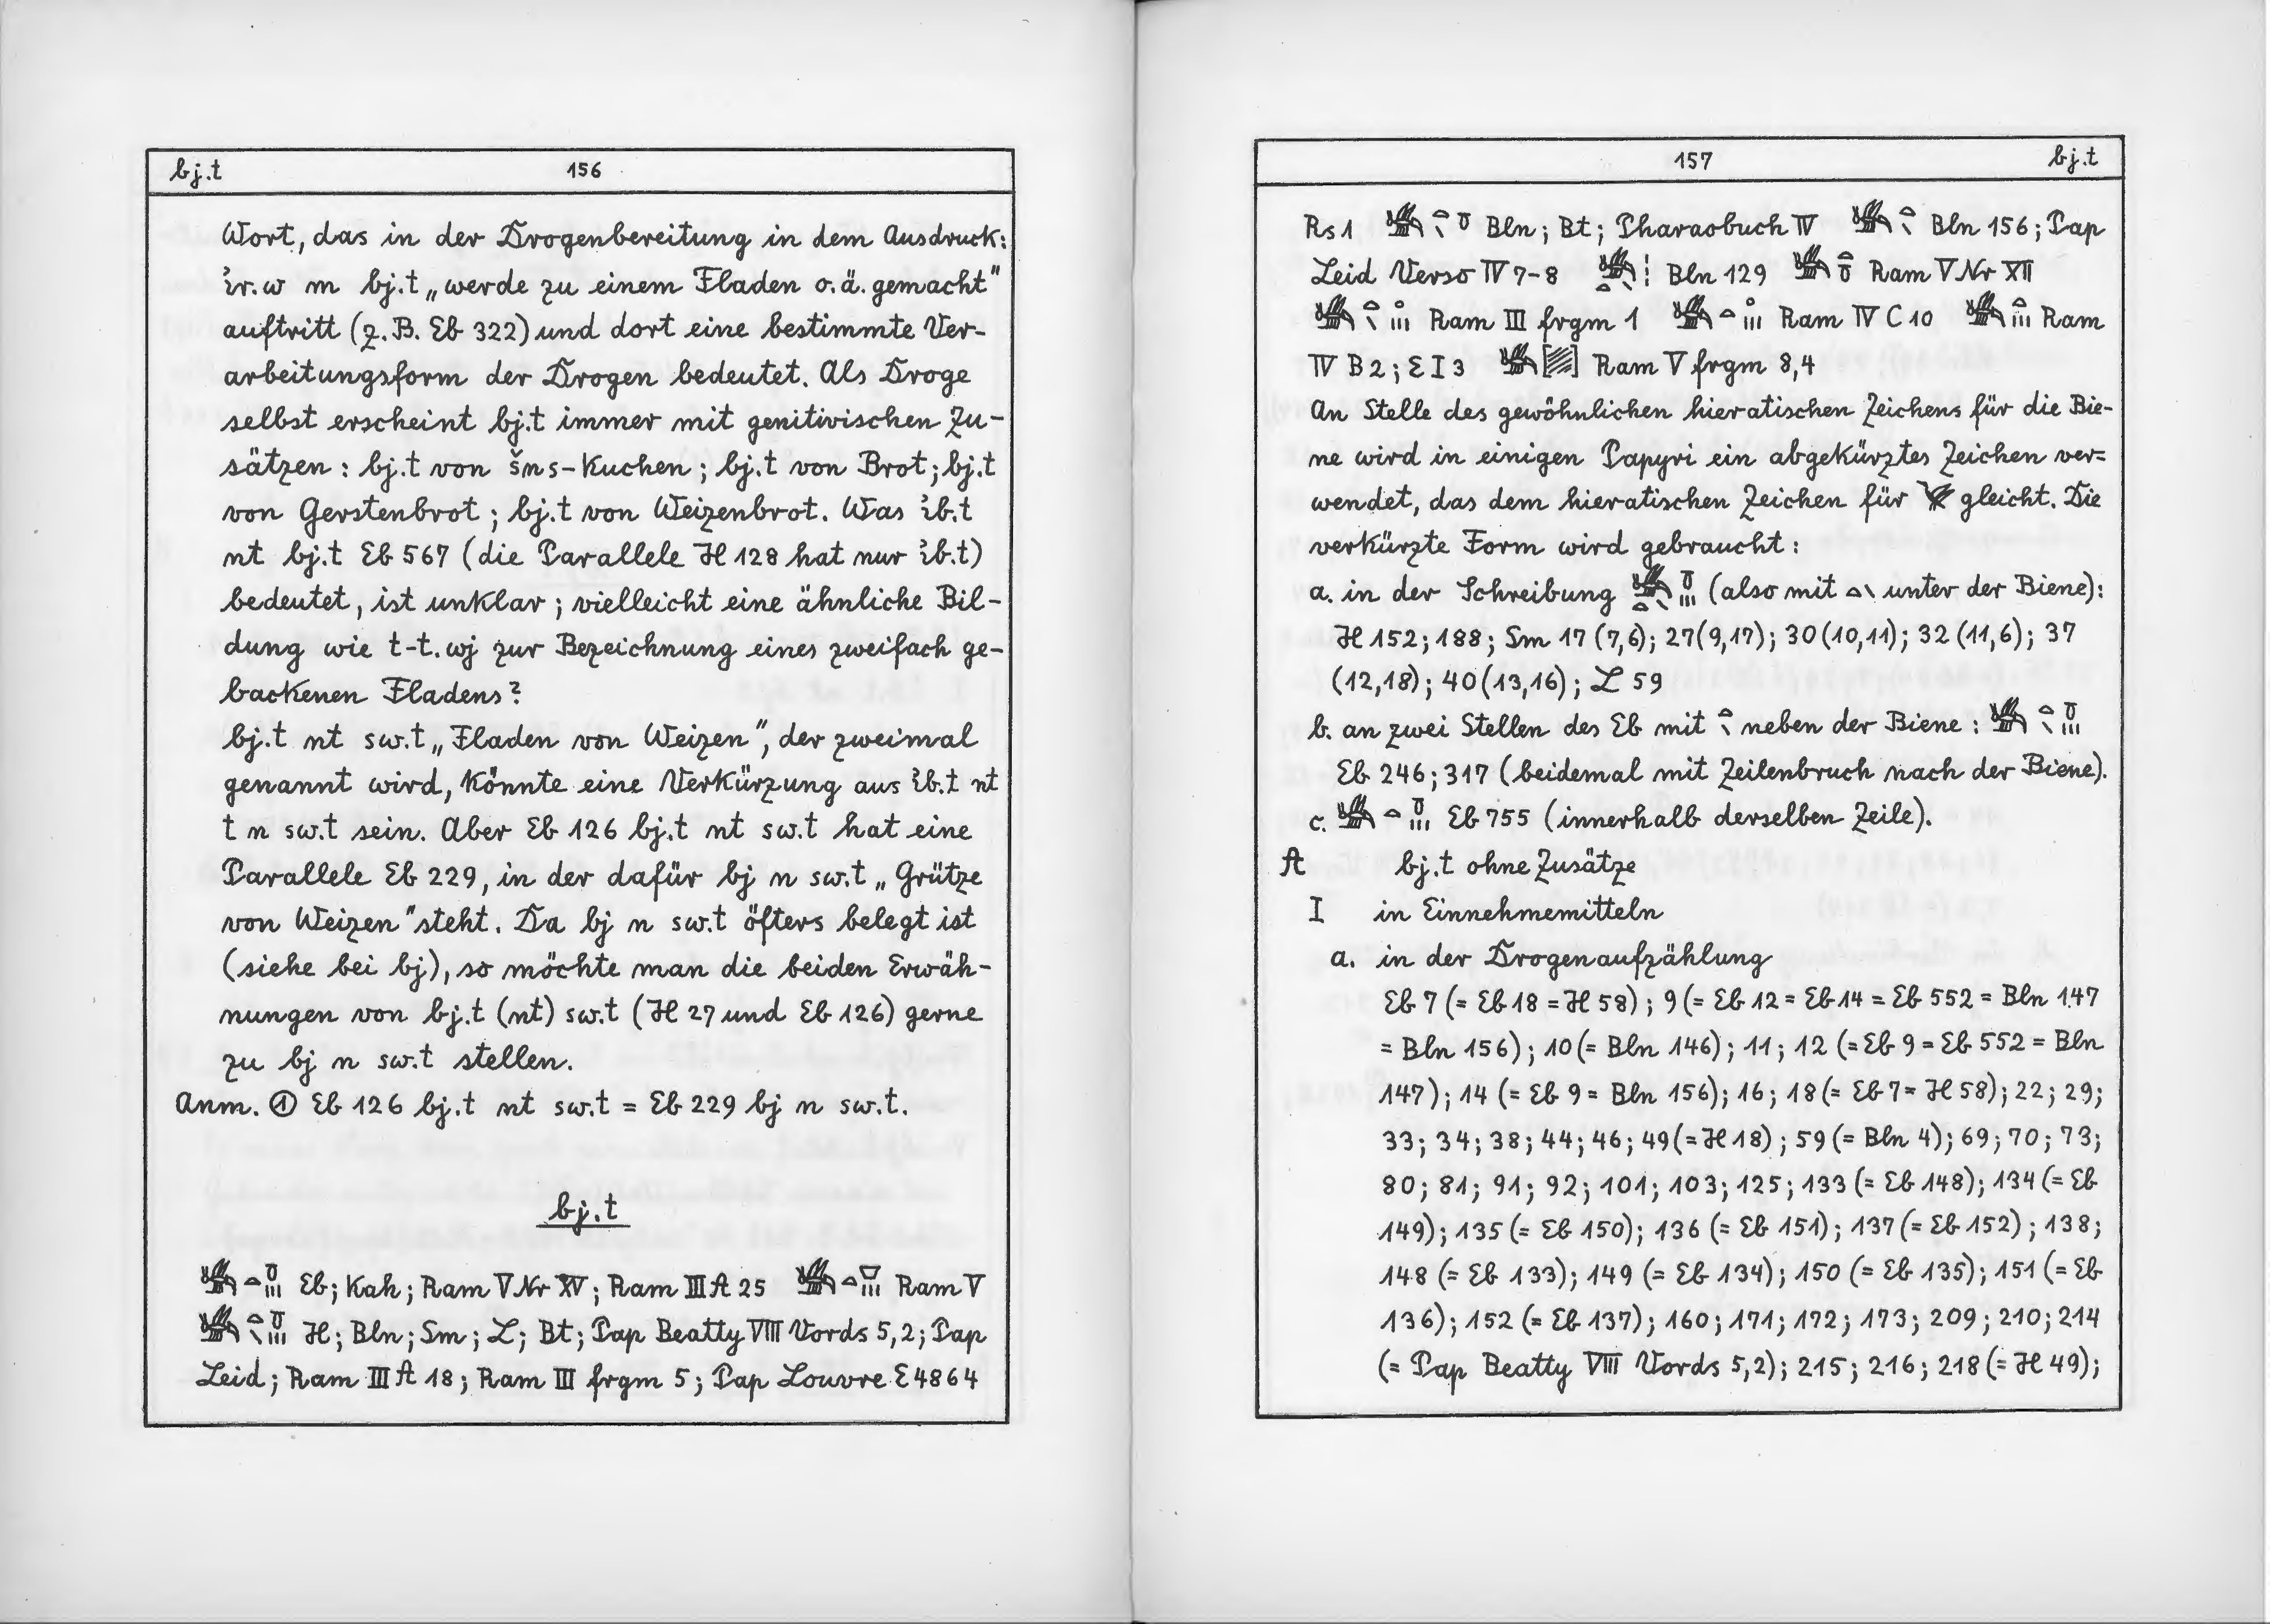 bj.t 156
Wort, das in der Drogenbereitung in dem Ausdruck:
ỉr.w m bj.t „werde zu einem Fladen o.ä. gemacht"
auftritt (z.B. Eb 322) und dort eine bestimmte Ver-
arbeitungsform der Drogen bedeutet. Als Droge
selbst erscheint bj.t immer mit genitivischen Zu-
sätzen: bj.t von šns-Kuchen; bj.t von Brot; bj.t
von Gerstenbrot; bj.t von Weizenbrot. Was ỉb.t
nt bj.t Eb 567 (die Parallele H 128 hat nur ỉb.t)
bedeutet, ist unklar; vielleicht eine ähnliche Bil-
dung wie t-t.wj zur Bezeichnung eines zweifach ge-
backenen Fladens?
bj.t nt sw.t „Fladen von Weizen", der zweimal
genannt wird, könnte eine Verkürzung aus ỉb.t nt
t n sw.t sein. Aber Eb 126 bj.t nt sw.t hat eine
Parallele Eb 229, in der dafür bj n sw.t „Grütze
von Weizen" steht. Da bj n sw.t öfters belegt ist
(siehe bei bj), so möchte man die beiden Erwäh-
nungen von bj.t (nt) sw.t (H 27 und Eb 126) gerne
zu bj n sw.t stellen.
Anm. ① Eb 126 bj.t nt sw.t = Eb 229 bj n sw.t.
bj.t
Eb; Kah; Ram V Nr XV; Ram III A 25 Ram V
H; Bln; Sm; L; Bt; Pap Beatty VIII Vords 5,2; Pap
Leid; Ram III A 18; Ram III frgm 5; Pap Louvre E 4864
157 bj.t
Rs 1 Bln; Bt; Pharaobuch IV Bln 156; Pap
Leid Verso IV 7-8 Bln 129 Ram V Nr XII
Ram III frgm 1 Ram IV C 10 Ram
IV B 2; E I 3 Ram V frgm 8,4
An Stelle des gewöhnlichen hieratischen Zeichens für die Bie-
ne wird in einigen Papyri ein abgekürztes Zeichen ver=
wendet, das dem hieratischen Zeichen für gleicht. Die
verkürzte Form wird gebraucht:
a. in der Schreibung (also mit unter der Biene):
H 152; 188; Sm 17 (7,6); 27 (9,17); 30 (10,11); 32 (11,6); 37
(12,18); 40 (13,16); L 59
b. an zwei Stellen des Eb mit neben der Biene:
Eb 246; 317 (beidemal mit Zeilenbruch nach der Biene).
c. Eb 755 (innerhalb derselben Zeile).
A bj.t ohne Zusätze
I in Einnehmemitteln
a. in der Drogenaufzählung
Eb 7 (= Eb 18 = H 58); 9 (= Eb 12 = Eb 14 = Eb 552 = Bln 147
= Bln 156); 10 (= Bln 146); 11; 12 (= Eb 9 = Eb 552 = Bln
147); 14 (= Eb 9 = Bln 156); 16; 18 (= Eb 7 = H 58); 22; 29;
33; 34; 38; 44; 46; 49 (= H 18); 59 (= Bln 4); 69; 70; 73;
80; 81; 91; 92; 101; 103; 125; 133 (= Eb 148); 134 (= Eb
149); 135 (= Eb 150); 136 (= Eb 151); 137 (= Eb 152); 138;
148 (= Eb 133); 149 (= Eb 134); 150 (= Eb 135); 151 (= Eb
136); 152 (= Eb 137); 160; 171; 172; 173; 209; 210; 214
(= Pap Beatty VIII Vords 5,2); 215; 216; 218 (= H 49);